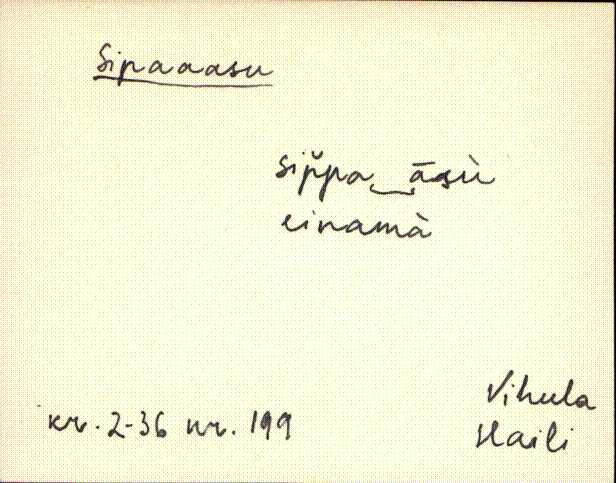 Sipaaasu
sip̆pa‿āsù
einamà
Vihula
kr. 2-36 nr. 199
Haili